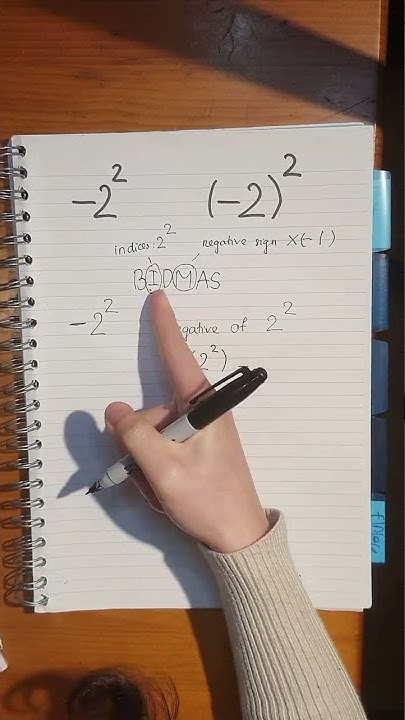 -2² (-2)²
indices: 2² negative sign ×(-1)
BIDMAS
-2² gative of 2²
(2²)